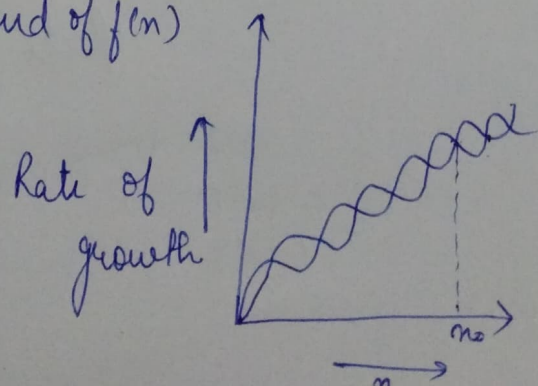 of f(n)
Rate of
growth
n₀
n